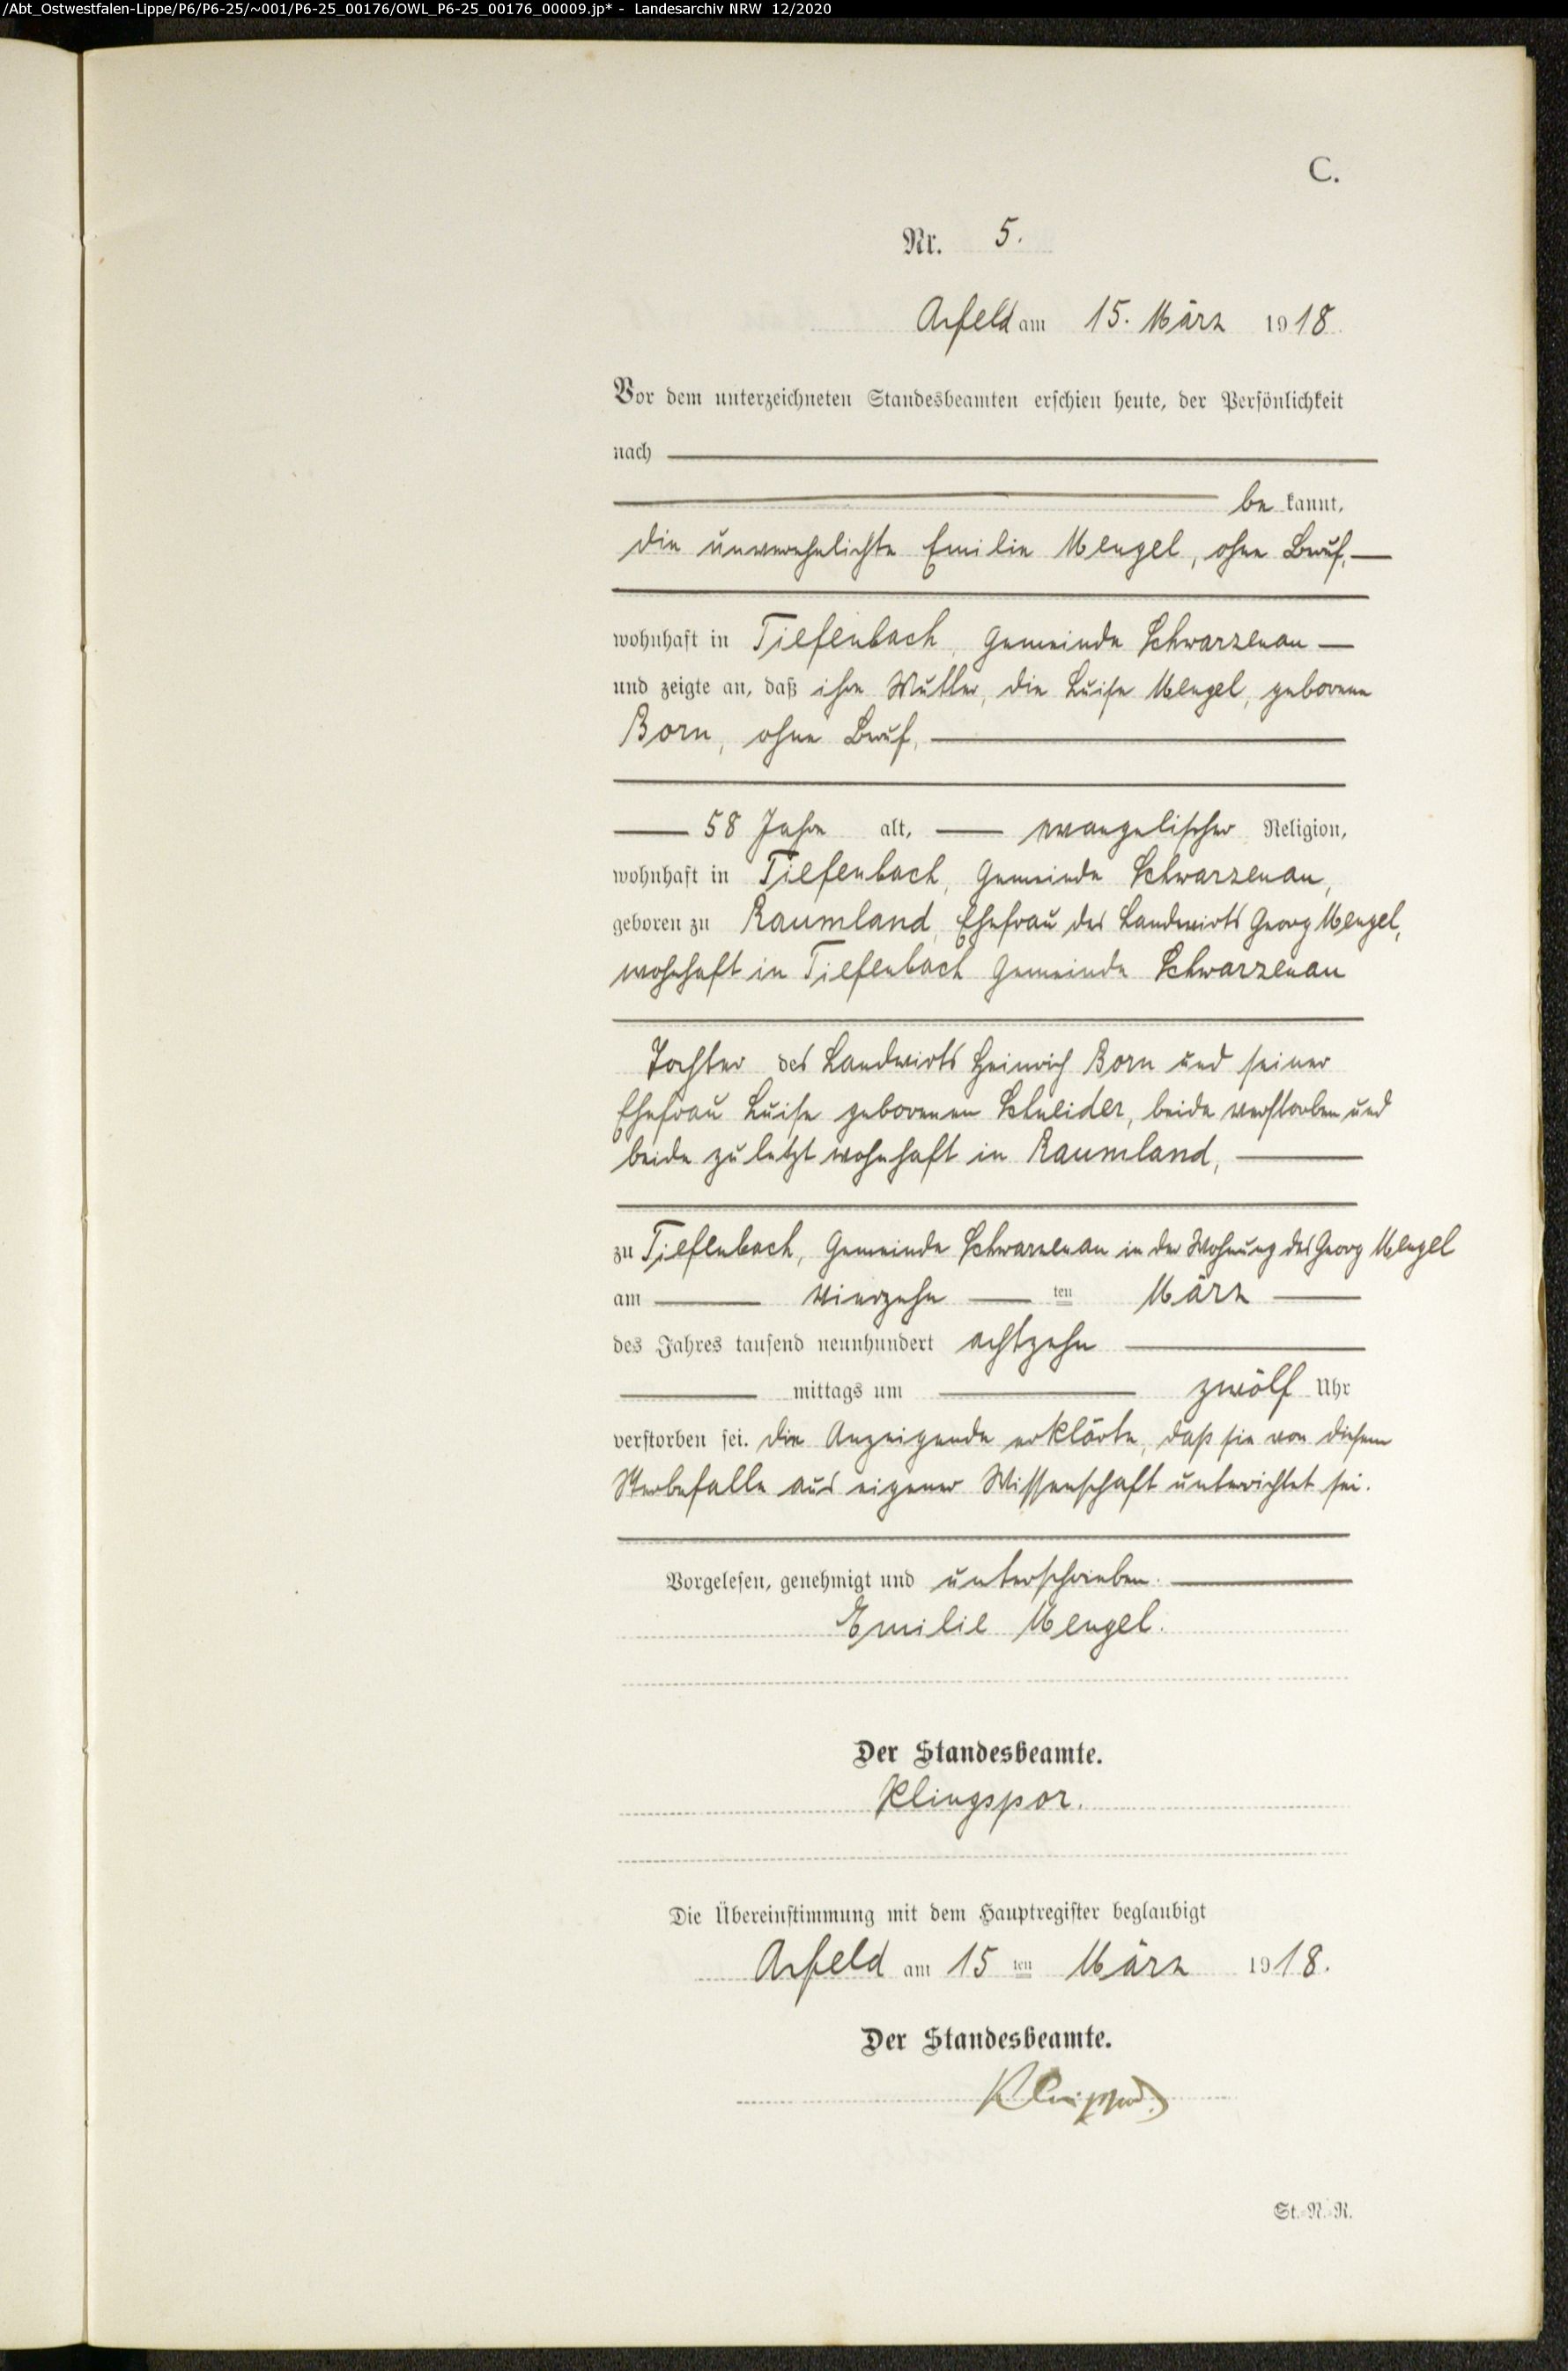 /Abt_Ostwestfalen-Lippe/P6/P6-25/~001/P6-25_00176/OWL_P6-25_00176_00009.jp* - Landesarchiv NRW 12/2020
C.
Nr. 5.
Arfeld am 15. März 1918.
Vor dem unterzeichneten Standesbeamten erschien heute, der Persönlichkeit
nach
be kannt,
die unverehelichte Emilie Mengel, ohne Beruf,
wohnhaft in Tiefenbach, Gemeinde Schwarzenau
und zeigte an, daß ihre Mutter, die Luise Mengel, geborene
Born, ohne Beruf,
58 Jahre alt, evangelischer Religion,
wohnhaft in Tiefenbach, Gemeinde Schwarzenau,
geboren zu Raumland, Ehefrau des Landwirts Georg Mengel,
wohnhaft in Tiefenbach Gemeinde Schwarzenau
Tochter des Landwirts Heinrich Born und seiner
Ehefrau Luise geborenen Schneider, beide verstorben und
beide zuletzt wohnhaft in Raumland,
zu Tiefenbach, Gemeinde Schwarzenau in der Wohnung des Georg Mengel
am vierzehn ten März
des Jahres tausend neunhundert achtzehn
mittags um zwölf Uhr
verstorben sei. Die Anzeigende erklärte, daß sie von diesem
Sterbefalle aus eigener Wissenschaft unterrichtet sei.
Vorgelesen, genehmigt und unterschrieben.
Emilie Mengel.
Der Standesbeamte.
Klingspor.
Die Übereinstimmung mit dem Hauptregister beglaubigt
Arfeld am 15 ten März 1918.
Der Standesbeamte.
Klingspor.
St.-N.-R.